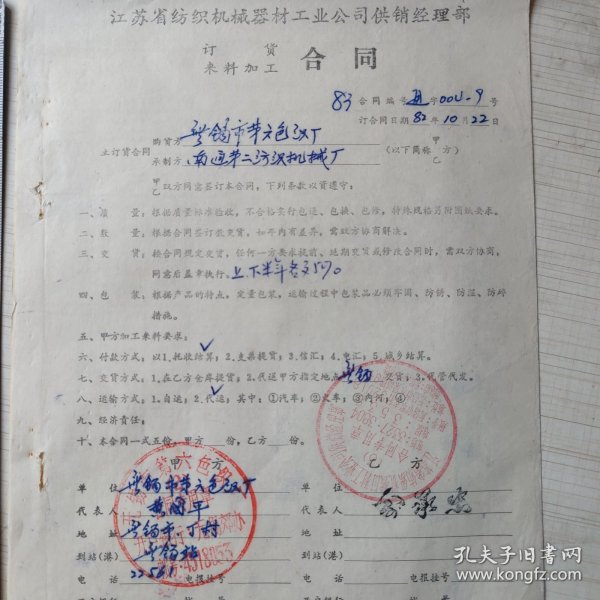 江苏省纺织机械器材工业公司供销经理部
订 货
来料加工 合同
83 合同编号 字004-9号
订合同日期 82年10月22日
购货方 无锡市第六色织厂 甲
立订货合同 (以下简称 方)
承制方 南通第二纺织机械厂 乙
甲
乙双方同意签订本合同，下列条款以资遵守：
一、质 量：根据质量标准验收，不合格实行包退、包换、包修，特殊规格另附图纸要求。
二、数 量：根据合同签订数交货，如年内有差异，需双方协商解决。
三、交 货：按合同规定交货，任何一方要求提前、延期交货或修改合同时，需双方协商，
同意后盖章执行。上下半年各交50%。
四、包 装：根据产品的特点，定量包装，运输过程中包装品必须牢固、防锈、防湿、防碎
措施。
五、甲方加工来料要求：
六、付款方式：以1.托收结算；2.支票提货；3.信汇；4.电汇；5.城乡结算。
七、交货方式：1.在乙方仓库提货；2.代送甲方指定地点无锡交货；3.代管代发。
八、运输方式：1.自运；2.代运；其中：①汽车；②火车；③内河；④
九、经济责任：
十、本合同一式五份，甲方 份，乙方 份。
甲 方 乙 方
单 位 无锡市第六色织厂 单 位
代表人 代表人
地 址 无锡市丁村 地 址
到站(港) 无锡站 到站(港)
电 话 22561 电报挂号 电 话 电报挂号
孔夫子旧书网
www.kongfz.com